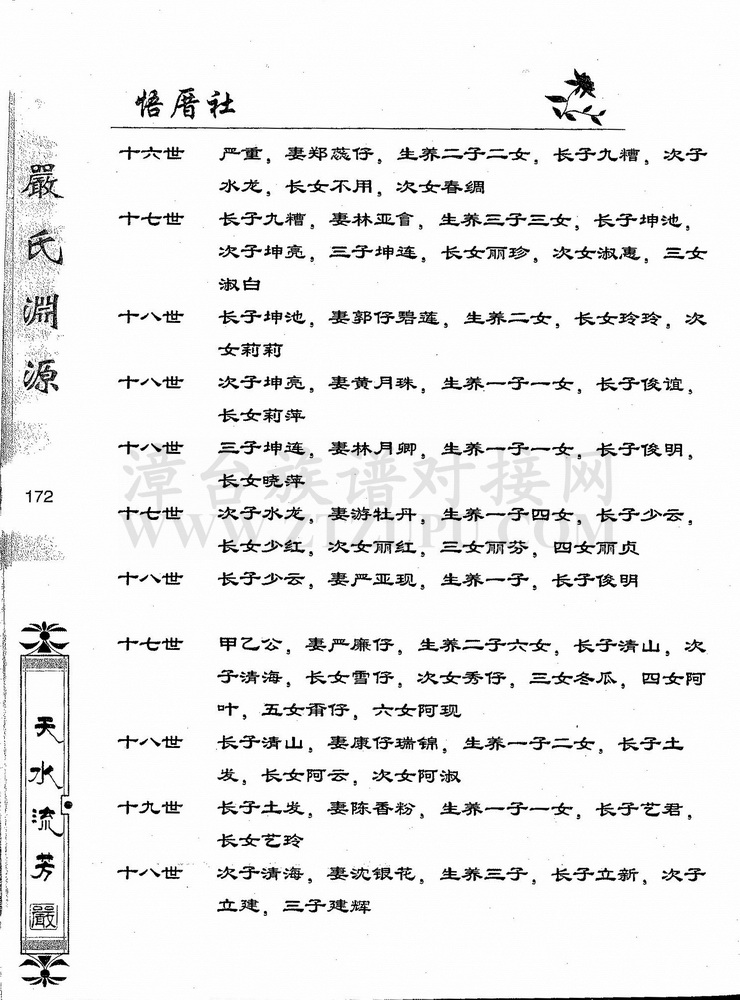 悟厝社
十六世 严重，妻郑蕊仔，生养二子二女，长子九糟，次子
水龙，长女不用，次女春绸
十七世 长子九糟，妻林亚肓，生养三子三女，长子坤池，
次子坤亮，三子坤连，长女丽珍，次女淑惠，三女
淑白
十八世 长子坤池，妻郭仔碧莲，生养二女，长女玲玲，次
女莉莉
十八世 次子坤亮，妻黄月珠，生养一子一女，长子俊谊，
长女莉萍
十八世 三子坤连，妻林月卿，生养一子一女，长子俊明，
长女晓萍
十七世 次子水龙，妻游牡丹，生养一子四女，长子少云，
长女少红，次女丽红，三女丽芬，四女丽贞
十八世 长子少云，妻严亚现，生养一子，长子俊明
十七世 甲乙公，妻严廉仔，生养二子六女，长子清山，次
子清海，长女雪仔，次女秀仔，三女冬瓜，四女阿
叶，五女甭仔，六女阿现
十八世 长子清山，妻康仔瑞锦，生养一子二女，长子土
发，长女阿云，次女阿淑
十九世 长子土发，妻陈香粉，生养一子一女，长子艺君，
长女艺玲
十八世 次子清海，妻沈银花，生养三子，长子立新，次子
立建，三子建辉
嚴氏淵源
172
天水流芳
嚴
漳台族谱对接网
WWW.ZTZUPU.COM